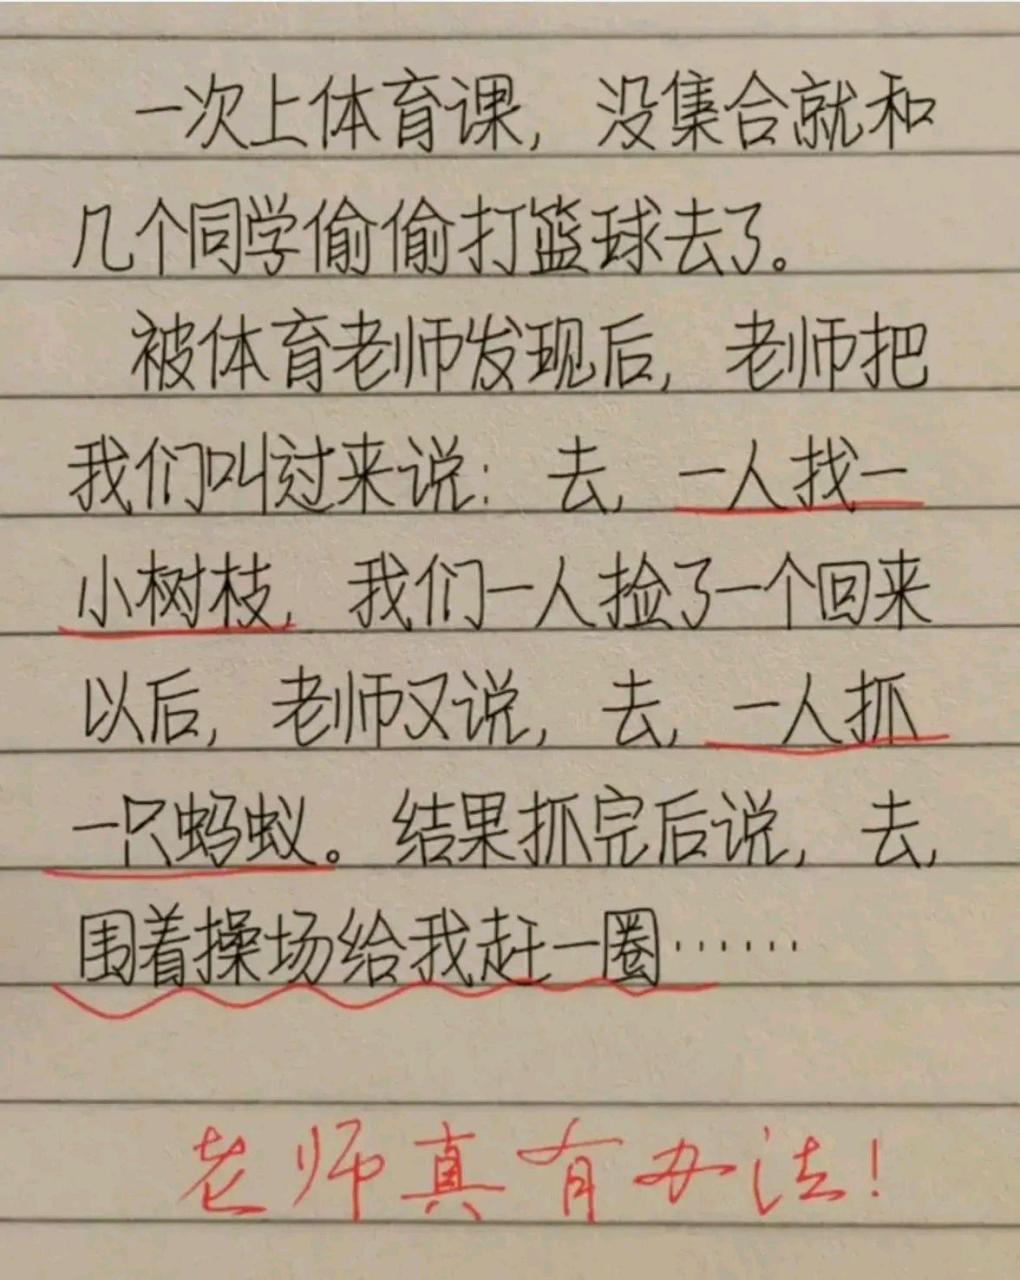 一次上体育课，没集合就和
几个同学偷偷打篮球去了。
被体育老师发现后，老师把
我们叫过来说：去，一人找一
小树枝，我们一人捡了一个回来
以后，老师又说，去，一人抓
一只蚂蚁。结果抓完后说，去，
围着操场给我赶一圈……
老师真有办法！